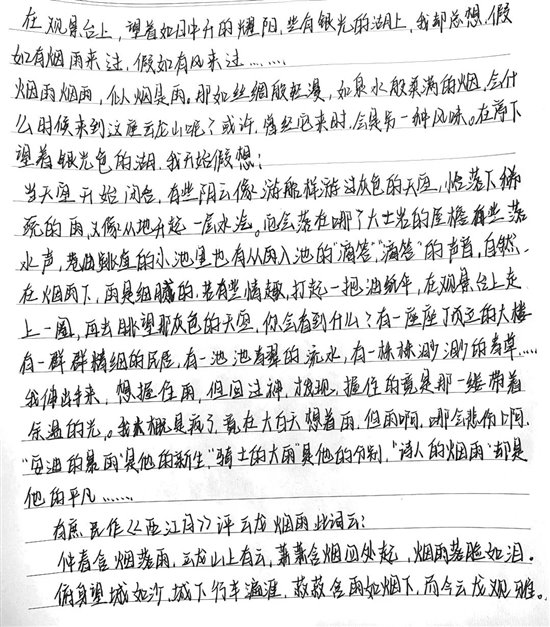 在观景台上，望着如日中升的耀阳，坐有银光的湖上，我却总想，假
如有烟雨来过，假如有风来过……
烟雨烟雨，似烟是雨。那如丝绸般轻漫，如泉水般柔满的烟，会什
么时候来到这座云龙山呢？或许，当丝雨来时，会是另一种风味。在亭下
望着银光色的湖，我开始假想：
当天空开始闭合，有些阴云像游船样游过灰色的天空，恰落下稀
疏的雨，又像从地升起一层水汽。雨会落在哪？大士岩的屋檐有些落
水声，九曲的小池里也有从雨入池的“滴答”“滴答”的声音，自然，
在烟雨下，雨是细腻的，若有些情趣，打起一把油纸伞，在观景台上走
上一圈，再去眺望那灰色的天空，你会看到什么？有一座座丁立的大楼
有一群群精细的民居，有一池池青翠的流水，有一株株渺渺的青草……
我伸出手来，想握住雨，但回过神，发现，握住的竟是那一缕带着
余温的光。我大概是疯了，竟在大白天想着雨，但雨啊，哪会悲伤啊，
“海迪的暴雨”是他的新生，“骑士的大雨”是他的分别，“诗人的烟雨”却是
他的平凡……
有庶民作《西江月》评云龙烟雨此词云：
仲春含烟落雨，云龙山上有云，萧萧含烟四处起，烟雨落脸如泪。
俯身望城如沙，城下行车遍涯，簌簌含雨如烟下，而今云龙观雅。